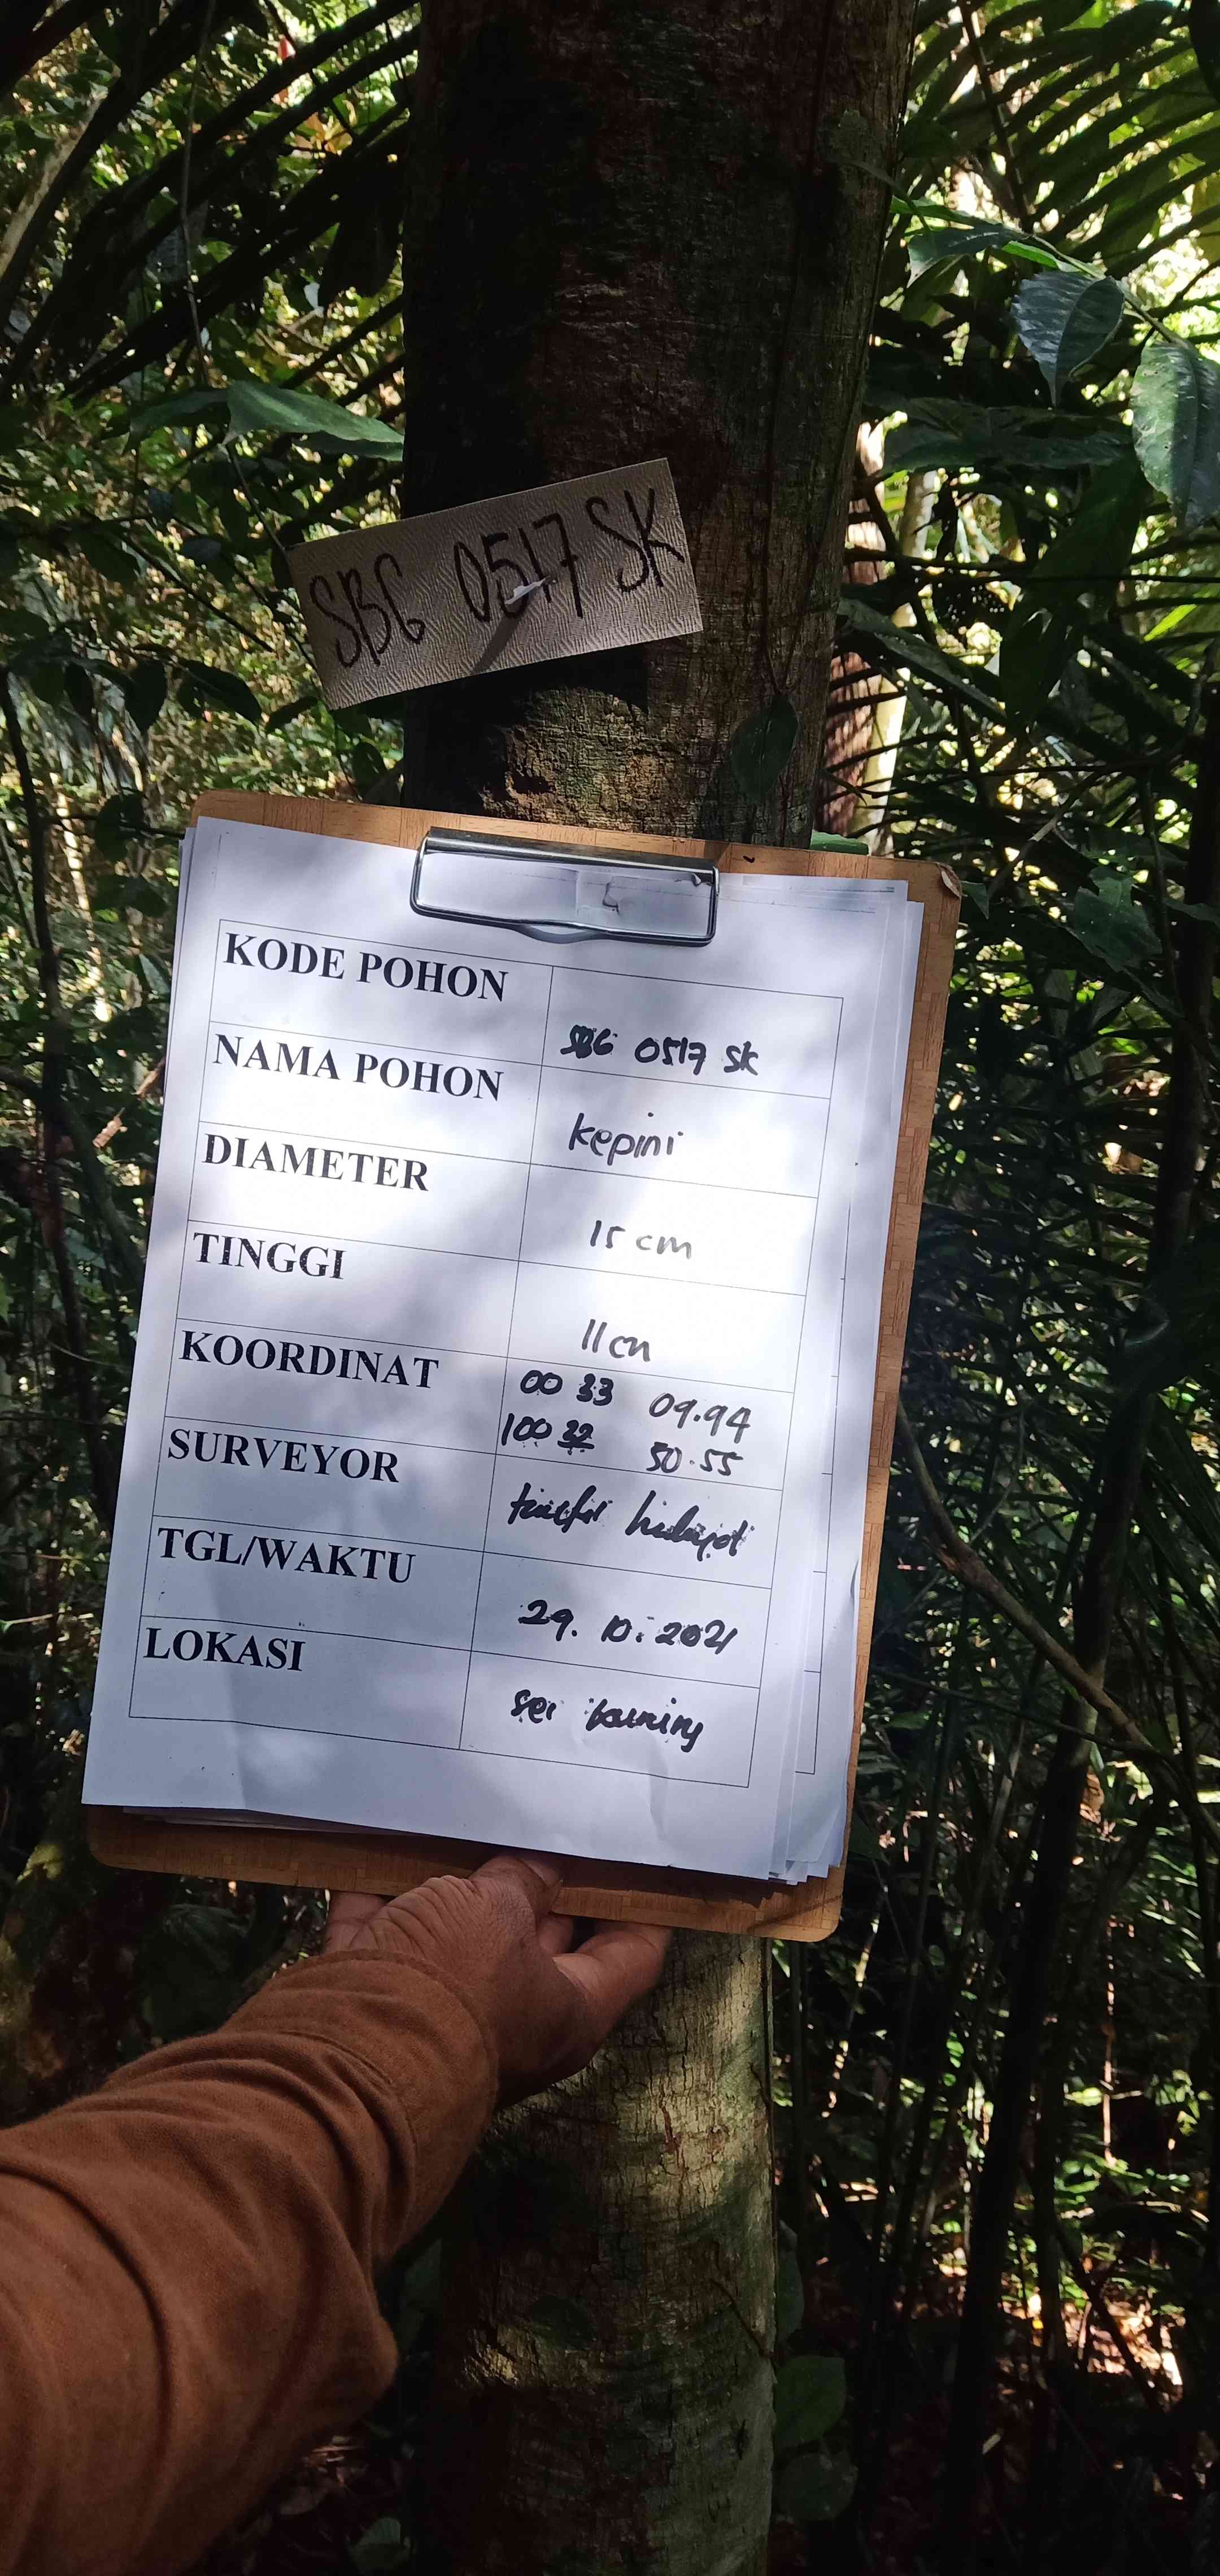 SBG 0517 SK
KODE POHON
SBG 0517 SK
NAMA POHON
kepini
DIAMETER
15 cm
TINGGI
11 cm
KOORDINAT
00 33 09.94
100 32 50.55
SURVEYOR
TGL/WAKTU
29. 10. 2021
LOKASI
sei kuning